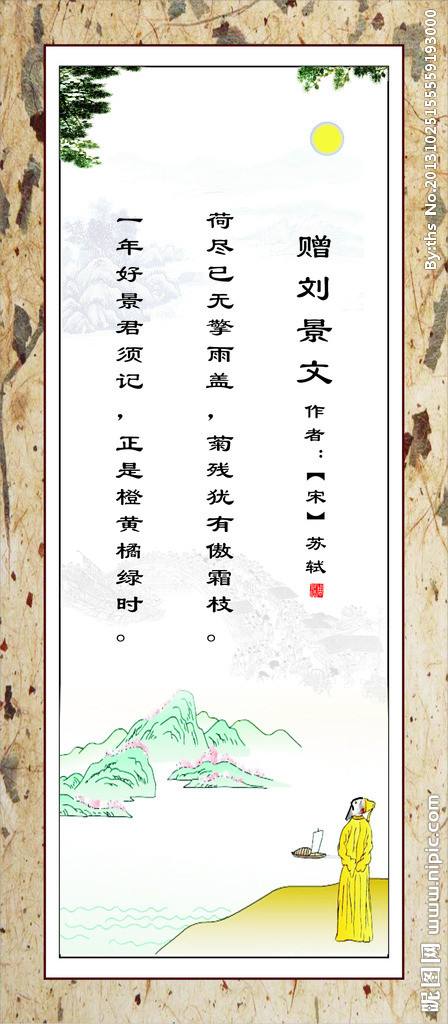 赠刘景文
作者：【宋】苏轼
荷尽已无擎雨盖，菊残犹有傲霜枝。
一年好景君须记，正是橙黄橘绿时。
By:ths No.20131025155559193000
昵图网 www.nipic.com